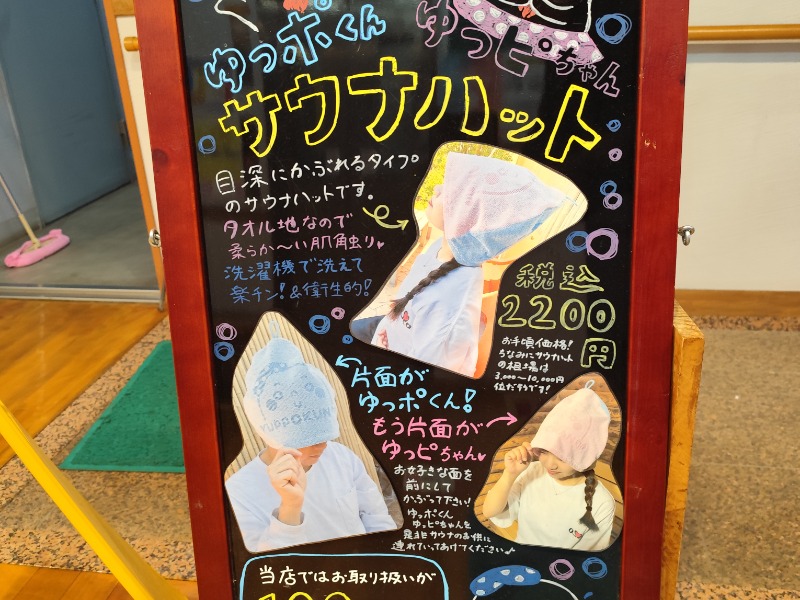 ゆっポくん
ゆっピちゃん
サウナハット
目深にかぶれるタイプ
のサウナハットです。
タオル地なので
柔らか〜い肌触り♥
洗濯機で洗えて
楽チン!&衛生的!
税込
2200円
お手頃価格!
ちなみにサウナハット
の相場は
3,000〜10,000円
位だそうです!
片面が
ゆっポくん!
もう片面が
ゆっピちゃん♥
YUPPOKUN
お好きな面を
前にして
かぶって下さい!
ゆっポくん
ゆっピちゃんを
是非サウナのお供に
連れていってあげてください♪
当店ではお取り扱いが